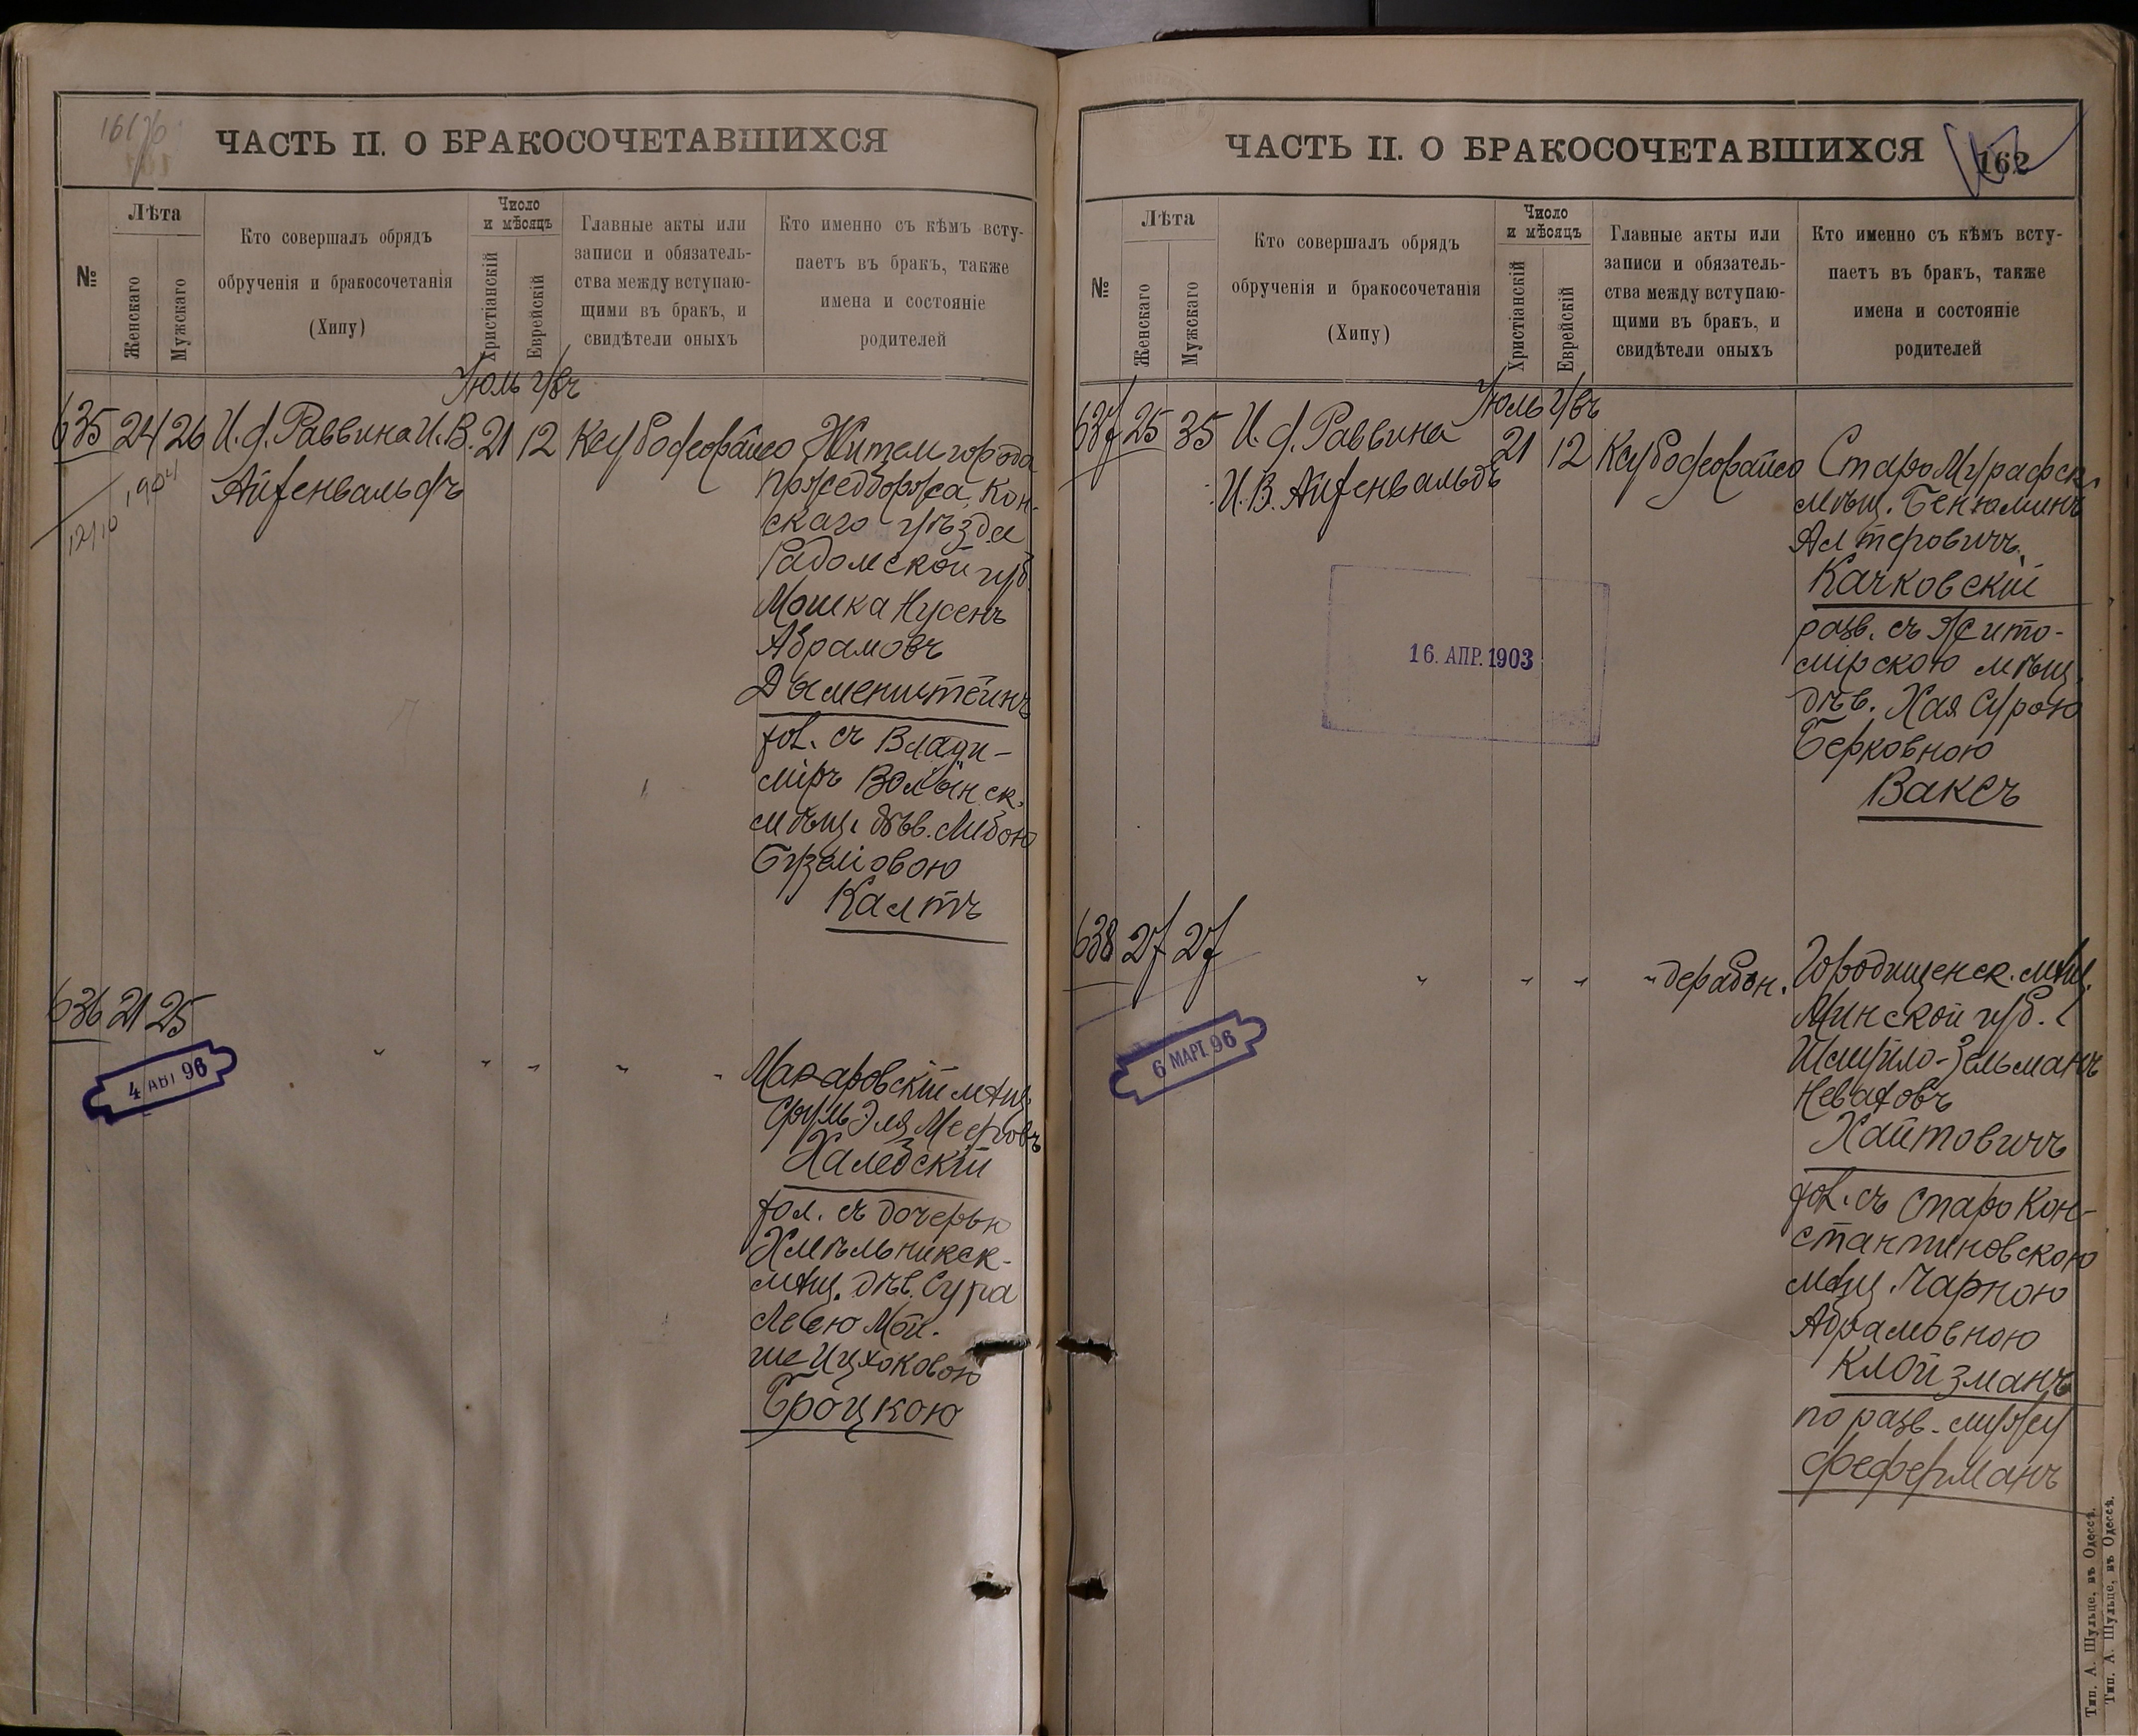 161/об
ЧАСТЬ II. О БРАКОСОЧЕТАВШИХСЯ
№
Лѣта
Женскаго
Мужскаго
Кто совершалъ обрядъ
обрученія и бракосочетанія
(Хипу)
Число
и мѣсяцъ
Христіанскій
Еврейскій
Главные акты или
записи и обязатель-
ства между вступаю-
щими въ бракъ, и
свидѣтели оныхъ
Кто именно съ кѣмъ всту-
паетъ въ бракъ, также
имена и состояніе
родителей
Іюль Авъ
635 24 26 И. д. Раввина И. В. 21 12
Айзенвальдъ
1904
Житель города
Пржедборжа, Кон-
скаго уѣзда
Радомской губ.
Мошка Нусенъ
Абрамовъ
Дыменштейнъ
хол. съ Влади-
міръ Волынск.
мѣщ. дѣв. Либою
Калтъ
636 21 25 " " " " "
4 АВГ 96
Макаровскій мѣщ.
Сруль Эля Мееровъ
Халебскій
хол. съ дочерью
Хмѣльникск.
мѣщ. дѣв. Сура
Леею Мой-
ше Ицхоковою
Броцкою
ЧАСТЬ II. О БРАКОСОЧЕТАВШИХСЯ
162
№
Лѣта
Женскаго
Мужскаго
Кто совершалъ обрядъ
обрученія и бракосочетанія
(Хипу)
Число
и мѣсяцъ
Христіанскій
Еврейскій
Главные акты или
записи и обязатель-
ства между вступаю-
щими въ бракъ, и
свидѣтели оныхъ
Кто именно съ кѣмъ всту-
паетъ въ бракъ, также
имена и состояніе
родителей
Іюль Авъ
637 25 35 И. д. Раввина 21 12
И. В. Айзенвальдъ
16. АПР. 1903
Старо Мурафск.
мѣщ. Беньяминъ
Алтеровичъ
Качковскій
разв. съ Жито-
мірскою мѣщ.
дѣв. Хая Сурою
Берковною
Ваксъ
638 27 27 " " " "
6 МАРТ. 96
Городищенск. мѣщ.
Минской губ.
Шмуйло-Зельманъ
Неваховъ
Хайтовичъ
хол. съ Старо Кон-
стантиновскою
мѣщ. Чарною
Абрамовною
Клойзманъ
по разв. мужу
Феферманъ
Тип. А. Шульце, въ Одессѣ.
Тип. А. Шульце, въ Одессѣ.